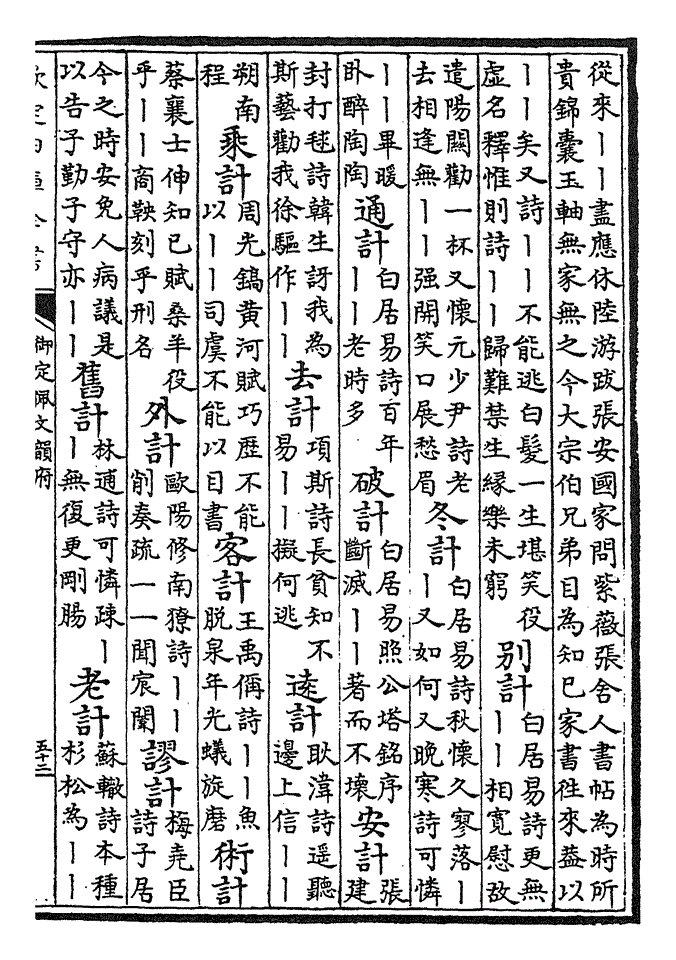 從來丨丨盡應休陸游跋張安國家問紫薇張舍人書帖為時所
貴錦囊玉軸無家無之今大宗伯兄弟目為知已家書往來葢以
丨丨矣又詩丨丨不能逃白髮一生堪笑役
虛名釋惟則詩丨丨歸難禁生緣樂未窮
別計
白居易詩更無
丨丨相寛慰故
遣陽關勸一杯又懷元少尹詩老
去相逢無丨丨强開笑口展愁眉
冬計
白居易詩秋懷久寥落丨
丨又如何又晚寒詩可憐
丨丨畢暖
卧醉陶陶
通計
白居易詩百年
丨丨老時多
破計
白居易照公塔銘序
斷滅丨丨著而不壞
安計
張
建
封打毬詩韓生訝我為
斯藝勸我徐驅作丨丨
去計
項斯詩長貧知不
易丨丨擬何逃
逺計
耿湋詩遥聽
邊上信丨丨
朔南
程
乘計
周光鎬黄河賦巧歴不能
以丨丨司虞不能以目書
客計
王禹偁詩丨丨魚
脱泉年光蟻旋磨
術計
蔡襄士伸知已賦桑羊役
乎丨丨商鞅刻乎刑名
外計
歐陽修南獠詩丨丨
削奏疏一一聞宸闈
謬計
梅堯臣
詩子居
今之時安免人病議是
以告子勤子守亦丨丨
舊計
林逋詩可憐疎丨
丨無復更剛腸
老計
蘇轍詩本種
杉松為丨丨
欽定四庫全書
御定佩文韻府
五十三